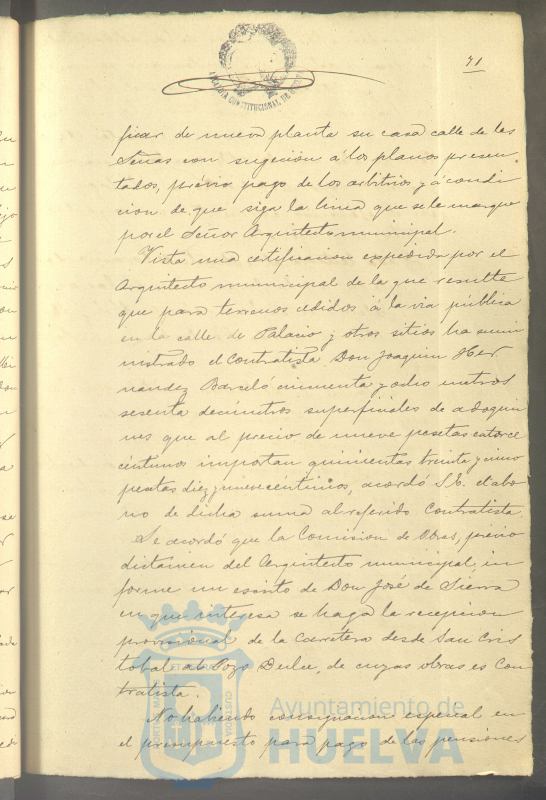 71
ALCALDIA CONSTITUCIONAL DE HUELVA
ficar de nueva planta su casa calle de las
Señas con sugecion á los planos presen-
tados, prévio pago de los arbitrios y á condi
cion de que siga la linea que se le marque
por el Señor Arquitecto municipal.
Vista una certificacion expedida por el
Arquitecto municipal de la que resulta
que para terrenos cedidos á la via pública
en la calle de Palacio y otros sitios ha sumi
nistrado el Contratista Don Joaquin Her
nandez Barceló cincuenta y ocho metros
sesenta decimetros superficiales de adoqui
nes que al precio de nueve pesetas catorce
céntimos importan quinientas treinta y cinco
pesetas diez y nueve céntimos, acordó S.E. el abo
no de dicha suma al referido Contratista.
Se acordó que la Comision de Obras, previo
dictamen del Arquitecto municipal, in
forme un escrito de Don José de Sierra
en que interesa se haga la recepcion
provisional de la Carretera desde San Cris
tobal al Pozo Dulce, de cuyas obras es Con
tratista.
No habiendo consignacion especial en
el presupuesto para pago de las pensiones
Ayuntamiento de
HUELVA